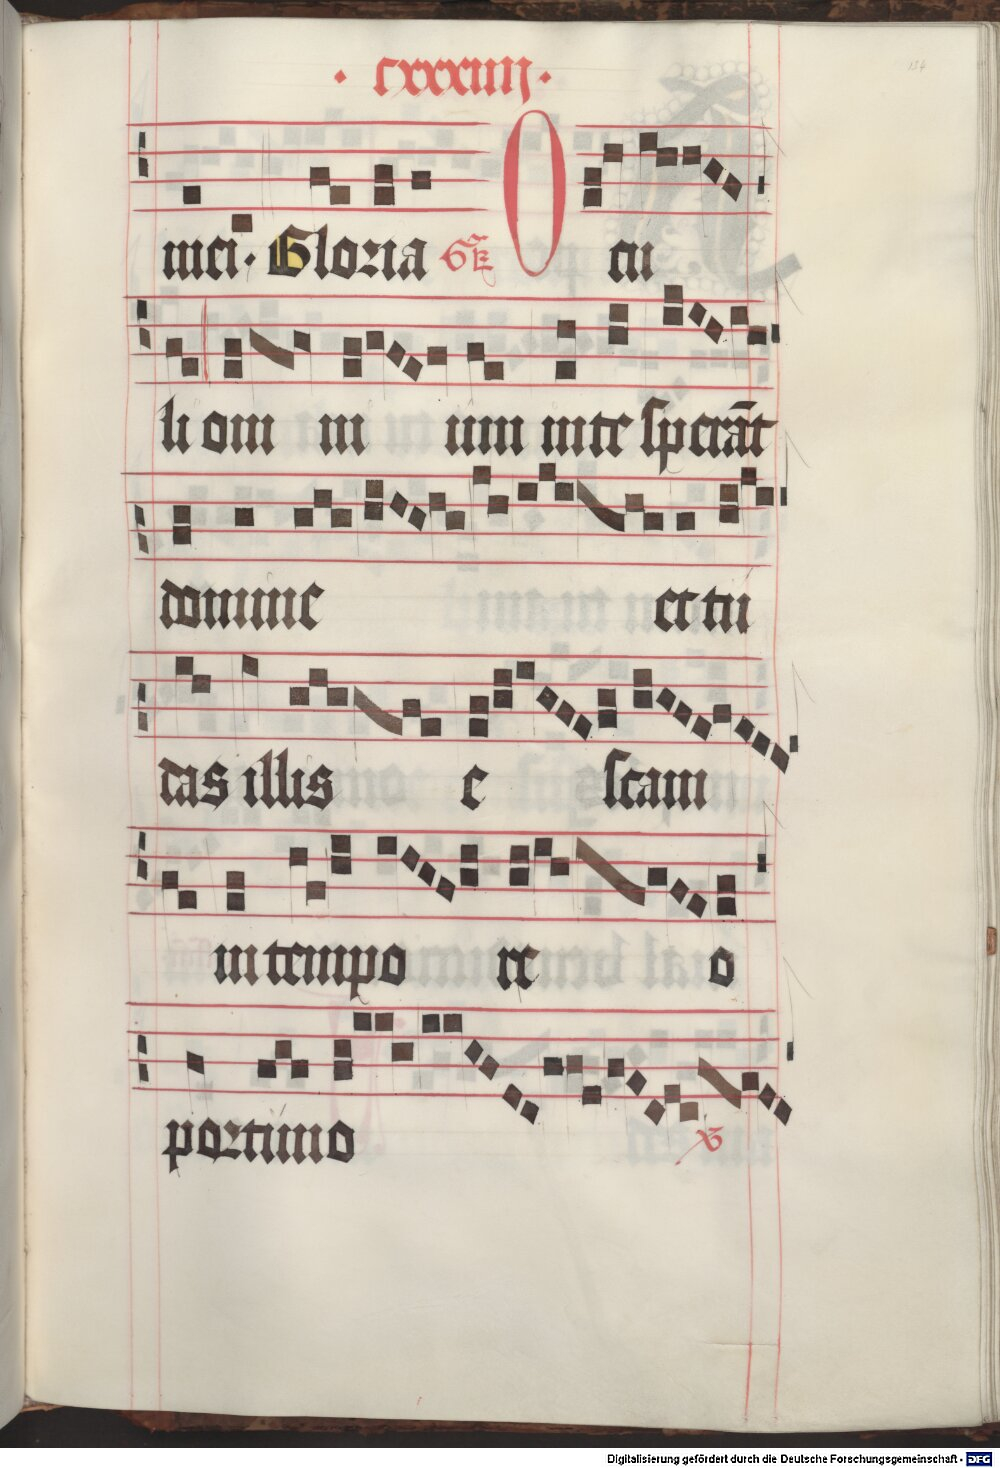 · cxxxiiij · 134
mei · Gloria Gr Ocu
li om ni um in te sperãt
domine et tu
das illis e scam
in tempo re o
portuno v
Digitalisierung gefördert durch die Deutsche Forschungsgemeinschaft - DFG